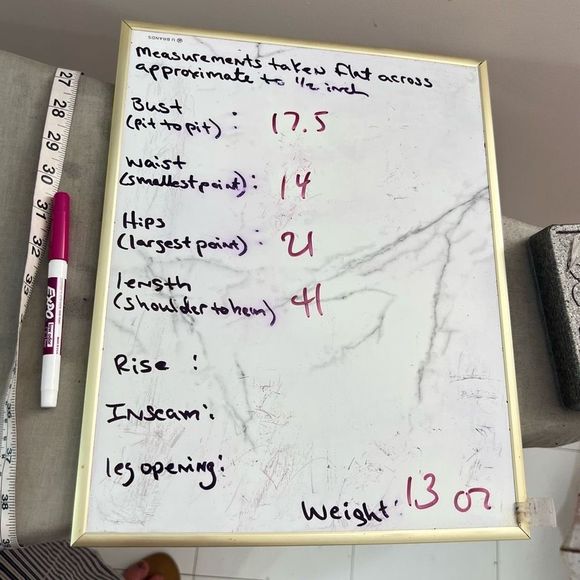 U BRANDS
Measurements taken flat across
approximate to 1/2 inch
Bust
(pit to pit) : 17.5
waist
(smallest point) : 14
Hips
(largest point) : 21
length
(shoulder to hem) 41
Rise :
Inseam :
leg opening :
Weight : 13 oz
27
28
29
30
31
32
33
37
38
EXPO